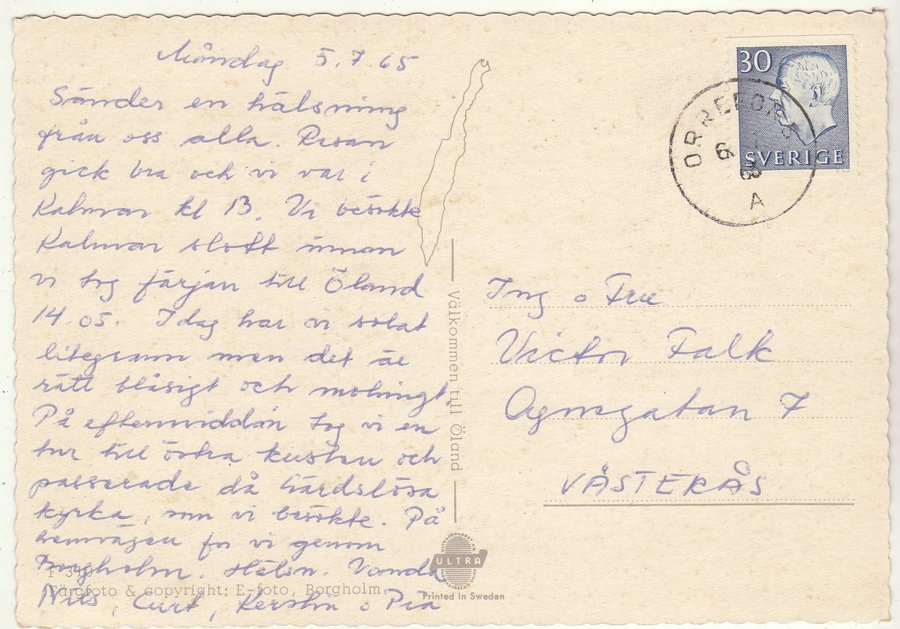 Måndag 5.7.65
Sänder en hälsning
från oss alla. Resan
gick bra och vi var i
Kalmar kl 13. Vi besökte
Kalmar slott innan
vi tog färjan till Öland
14.05. Idag har vi solat
litegrann men det är
rätt blåsigt och molnigt.
På eftermiddan tog vi en
tur till östra kusten och
passerade då Gärdslösa
kyrka, som vi besökte. På
hemvägen for vi genom
Borgholm. Hälsn. Vanda
Nils, Curt, Kerstin o Pia
Färgfoto & copyright: E-foto, Borgholm
Välkommen till Öland
ULTRA
Printed in Sweden
30
SVERIGE
ORREFORS
A
Ing o Fru
Victor Falk
Agnegatan 7
VÄSTERÅS